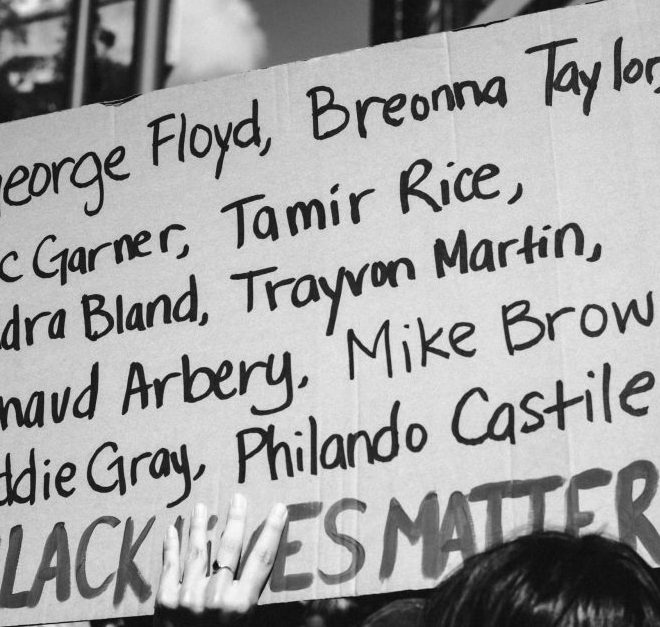 eorge Floyd, Breonna Taylor,
c Garner, Tamir Rice,
dra Bland, Trayvon Martin,
maud Arbery, Mike Brow
ddie Gray, Philando Castile
LACK LIVES MATTER